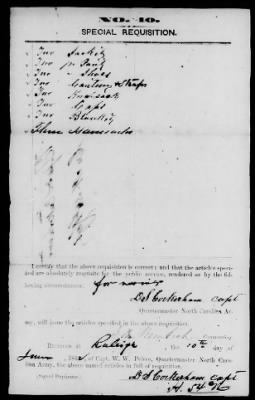 NO. 40.
SPECIAL REQUISITION.
Two Jackets
Two pr Pants
Two " Shoes
Two Canteens & Straps
Two Knapsack
Two Caps
Two Blankets
Three Haversacks
I certify that the above requisition is correct; and that the articles speci-
fied are absolutely requisite for the public service, rendered so by the fol-
lowing circumstances:
D S Cockerham Capt
Quartermaster North Carolina Ar-
my, will issue the articles specified in the above requisition.
commanding
Received at Raleigh, the 10th day of
June 186 of Capt. W. W. Peirce, Quartermaster North Caro-
lina Army, the above named articles in full of requisition.
(Signed Duplicates.)
D S Cockerham Capt
54